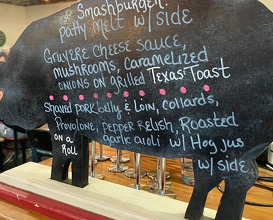 Smashburger
patty melt w/ side
Gruyere cheese sauce,
mushrooms, caramelized
onions on grilled Texas Toast
Shaved pork belly & Loin, collards,
Provolone, pepper relish, Roasted
on a garlic aioli w/ Hog Jus
Roll w/ side